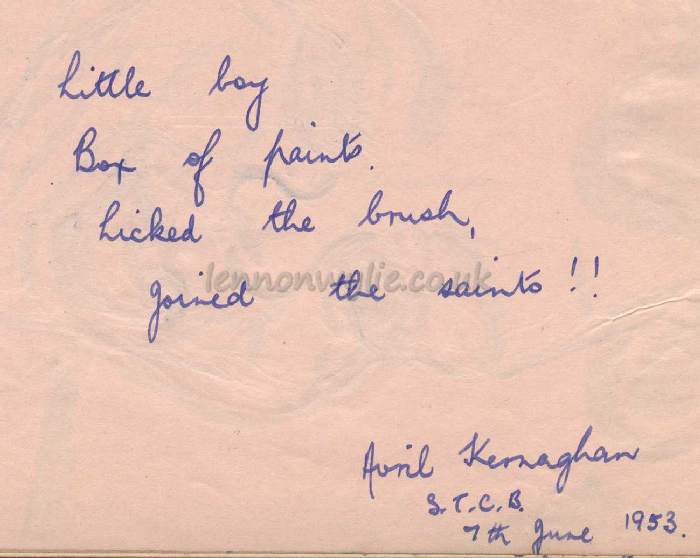 Little boy
Box of paints.
Licked the brush,
joined the saints!!
lennonwylie.co.uk
Avril Kernaghan
S.T.C.B.
7th June 1953.